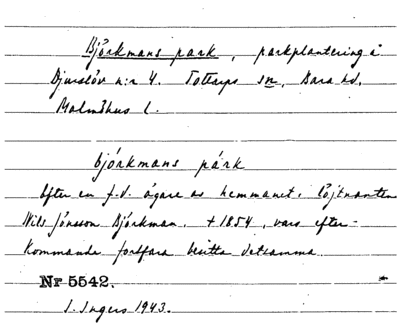 Björkmans park, parkplantering å
Djurslöv n:r 4. Tottarps sn, Bara hd,
Malmöhus l.
björkmans párk
Efter en f.d. ägare av hemmanet, löjtnanten
Nils Jönsson Björkman, † 1854, vars efter-
kommande fortfara besitta detsamma
Nr 5542.
I. Ingers 1943.